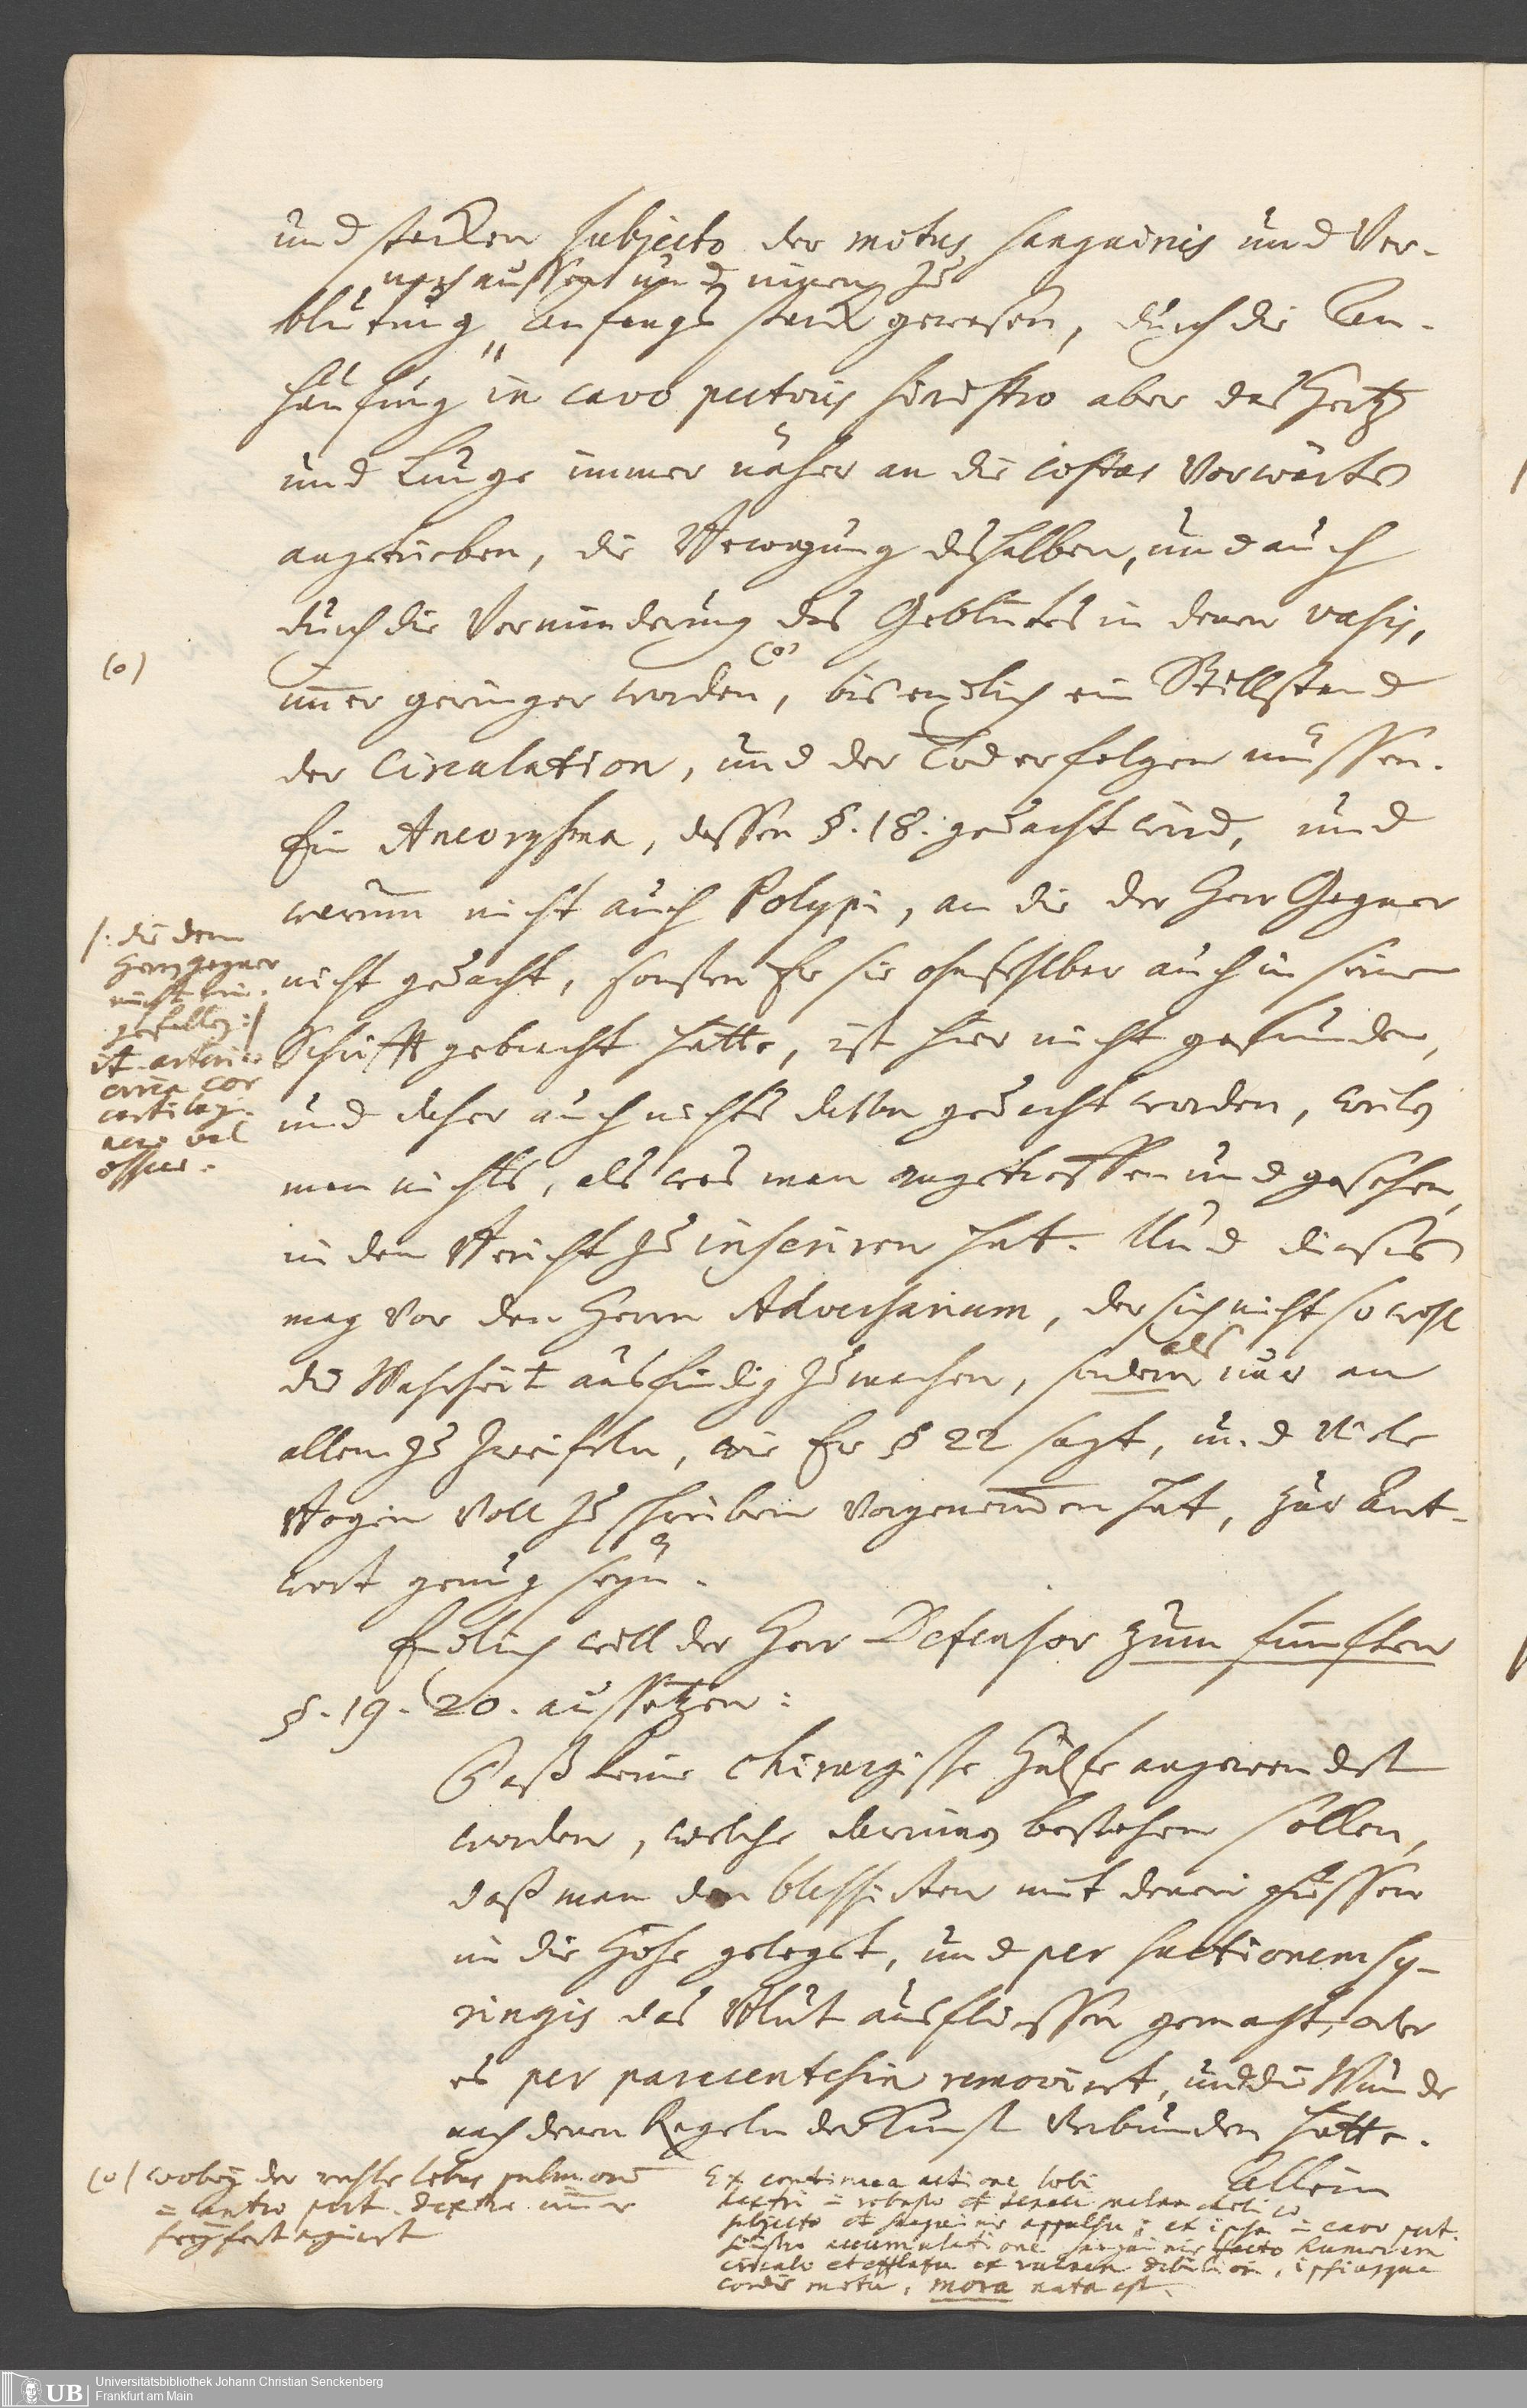 und starken subjecto der motus sanguinis und Ver-
nach aussen und innen zu
blutung anfangs starck gewesen, durch die An-
häufung in cavo pectoris sinistro aber das Hertz
und Lunge immer näher an die costas vorwärts
angetrieben, die Bewegung deshalben, und auch
durch die Verminderung des Geblütes in denen vasis,
(o)
im̄er geringer worden (o), bis endlich ein Stillstand
der Circulation, und der Tod erfolgen müssen.
Ein Anevrysma, dessen §. 18. gedacht wird, und
warum nicht auch Polypi, an die der Herr Gegner
nicht gedacht, sonsten Er sie ohnfehlbar auch in seine
Schrifft gebracht hätte, ist hier nicht gefunden,
und daher auch nichts davon gedacht worden, weil
man nichts, als was man angetroffen und gesehen,
in den Bericht zu inseriren hat. Und dieses
mag vor den Herrn Adversarium, der sich nicht so wohl
als
die Wahrheit ausfindig zu machen, sondern nur an
allem zu zweifeln, wie Er § 22 sagt, und viele
Bogen voll zu schreiben vorgenom̄en hat, zur Ant-
wort genug seyn.
/: die dem
Herrn gegner
nicht ein-
gefallen :/
it. arteriae
circa cor
cartilagi-
neae vel
osseae.
Endlich will der Herr Defensor zum fünften
§. 19. 20. aussetzen:
Daß keine chirurgische Hülfe angewendet
worden, welche darinnen bestehen sollen,
daß man den blessirten mit denen Füssen
in die Höhe gelegt, und per suctionem sy-
ringis das Blut ausfliessen gemacht, oder
es per paracentesin removirt, und die Wunde
nach denen Regeln der Kunst verbunden hätte.
Allein
(o) wobey der rechte lobus pulmonum
in antro pect. dextro im̄er
fort agiret
Ex continua actione lobi
dextri in robusto et
subjecto et sanguinis appulsu; et ipsa in cavo pect.
sinistro accumulatione sanguinis facto
circulo et efflatu ex vulnere debiliori, ipsiusque
cordis motu, mora nata est.
Universitätsbibliothek Johann Christian Senckenberg
Frankfurt am Main
UB